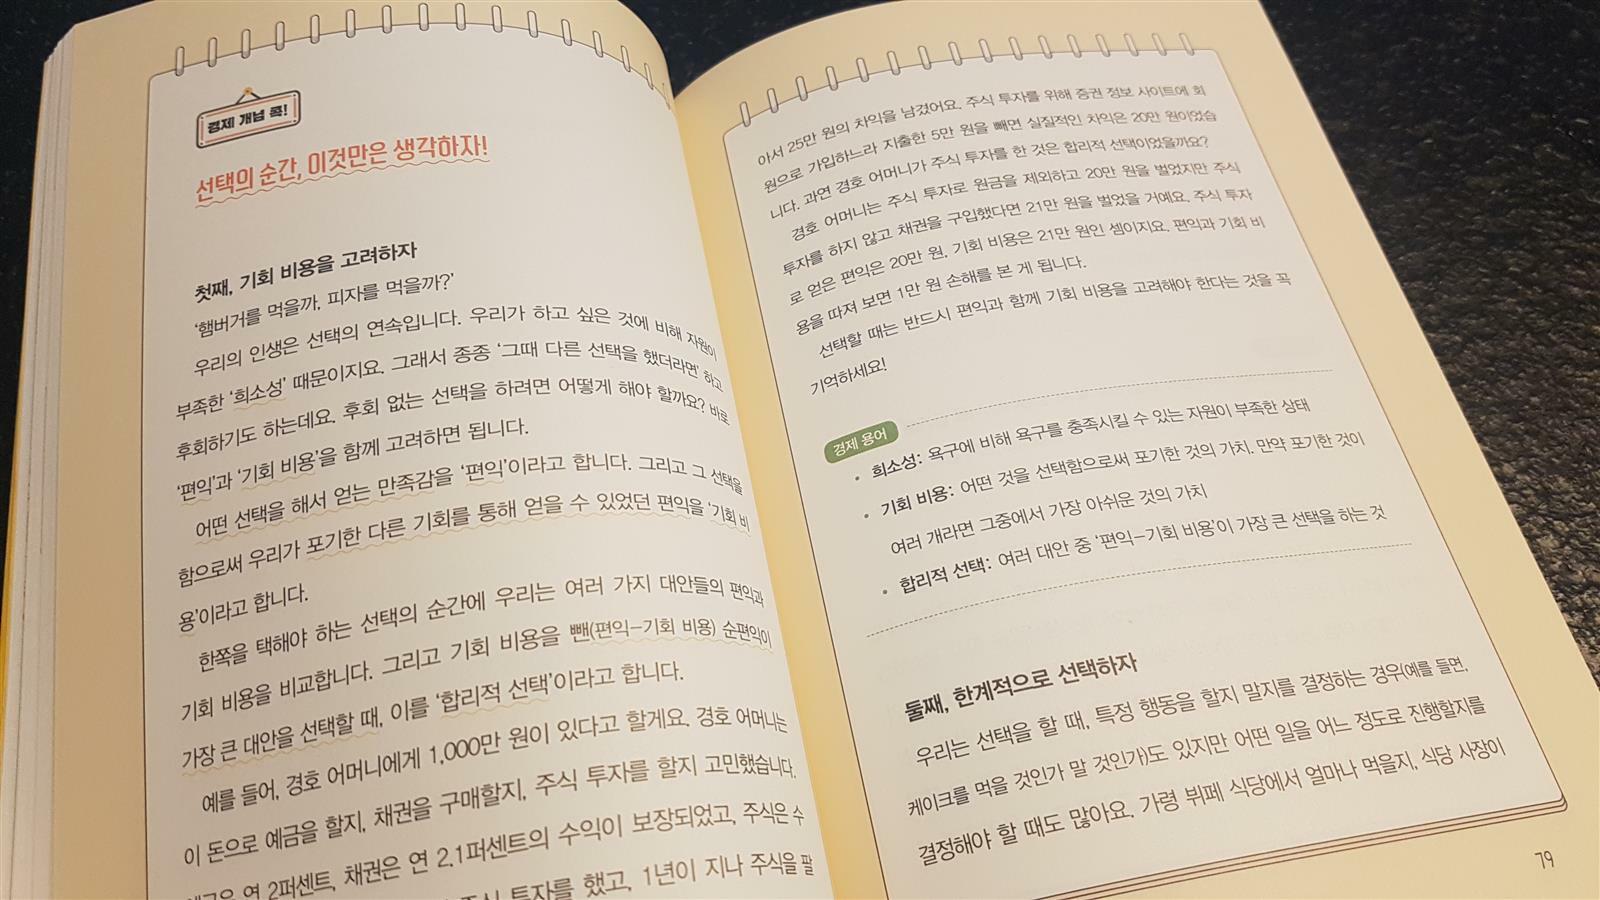 경제 개념 콕!
선택의 순간, 이것만은 생각하자!
첫째, 기회 비용을 고려하자
‘햄버거를 먹을까, 피자를 먹을까?’
우리의 인생은 선택의 연속입니다. 우리가 하고 싶은 것에 비해 자원이
부족한 ‘희소성’ 때문이지요. 그래서 종종 ‘그때 다른 선택을 했더라면’ 하고
후회하기도 하는데요. 후회 없는 선택을 하려면 어떻게 해야 할까요? 바로
‘편익’과 ‘기회 비용’을 함께 고려하면 됩니다.
어떤 선택을 해서 얻는 만족감을 ‘편익’이라고 합니다. 그리고 그 선택을
함으로써 우리가 포기한 다른 기회를 통해 얻을 수 있었던 편익을 ‘기회 비
용’이라고 합니다.
한쪽을 택해야 하는 선택의 순간에 우리는 여러 가지 대안들의 편익과
기회 비용을 비교합니다. 그리고 기회 비용을 뺀(편익–기회 비용) 순편익이
가장 큰 대안을 선택할 때, 이를 ‘합리적 선택’이라고 합니다.
예를 들어, 경호 어머니에게 1,000만 원이 있다고 할게요. 경호 어머니는
이 돈으로 예금을 할지, 채권을 구매할지, 주식 투자를 할지 고민했습니다.
예금은 연 2퍼센트, 채권은 연 2.1퍼센트의 수익이 보장되었고, 주식은 수
주식 투자를 했고, 1년이 지나 주식을 팔
아서 25만 원의 차익을 남겼어요. 주식 투자를 위해 증권 정보 사이트에 회
원으로 가입하느라 지출한 5만 원을 빼면 실질적인 차익은 20만 원이었습
니다. 과연 경호 어머니가 주식 투자를 한 것은 합리적 선택이었을까요?
경호 어머니는 주식 투자로 원금을 제외하고 20만 원을 벌었지만 주식
투자를 하지 않고 채권을 구입했다면 21만 원을 벌었을 거예요. 주식 투자
로 얻은 편익은 20만 원, 기회 비용은 21만 원인 셈이지요. 편익과 기회 비
용을 따져 보면 1만 원 손해를 본 게 됩니다.
선택할 때는 반드시 편익과 함께 기회 비용을 고려해야 한다는 것을 꼭
기억하세요!
경제 용어
• 희소성: 욕구에 비해 욕구를 충족시킬 수 있는 자원이 부족한 상태
• 기회 비용: 어떤 것을 선택함으로써 포기한 것의 가치. 만약 포기한 것이
여러 개라면 그중에서 가장 아쉬운 것의 가치
• 합리적 선택: 여러 대안 중 ‘편익–기회 비용’이 가장 큰 선택을 하는 것
둘째, 한계적으로 선택하자
우리는 선택을 할 때, 특정 행동을 할지 말지를 결정하는 경우(예를 들면,
케이크를 먹을 것인가 말 것인가)도 있지만 어떤 일을 어느 정도로 진행할지를
결정해야 할 때도 많아요. 가령 뷔페 식당에서 얼마나 먹을지, 식당 사장이
79